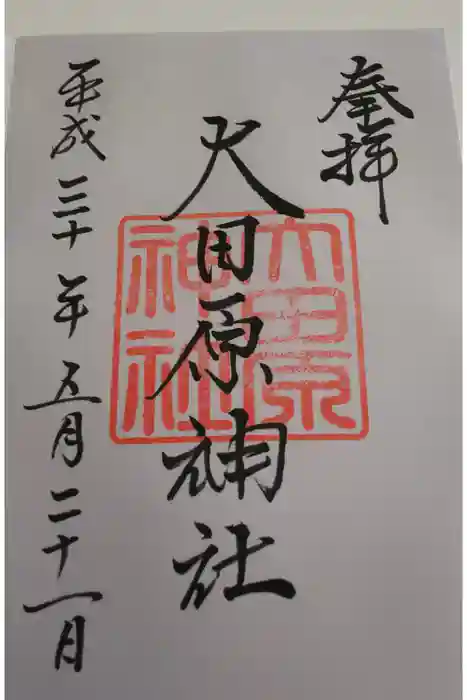 奉拝
大田原神社
大田原
神社
平成三十年五月二十一日